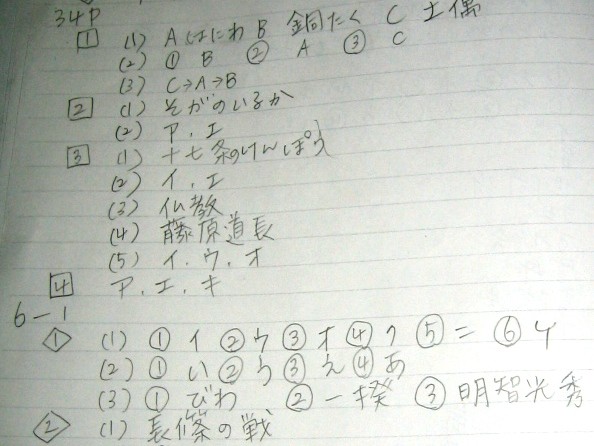 34P
1 (1) A はにわ B 銅たく C 土偶
(2) ① B ② A ③ C
(3) C→A→B
2 (1) そがのいるか
(2) ア、エ
3 (1) 十七条のけんぽう
(2) イ、エ
(3) 仏教
(4) 藤原道長
(5) イ、ウ、オ
4 ア、エ、キ
6-1
1 (1) ① イ ② ウ ③ オ ④ ク ⑤ ニ ⑥ ケ
(2) ① い ② う ③ え ④ あ
(3) ① びわ ② 一揆 ③ 明智光秀
2 (1) 長篠の戦